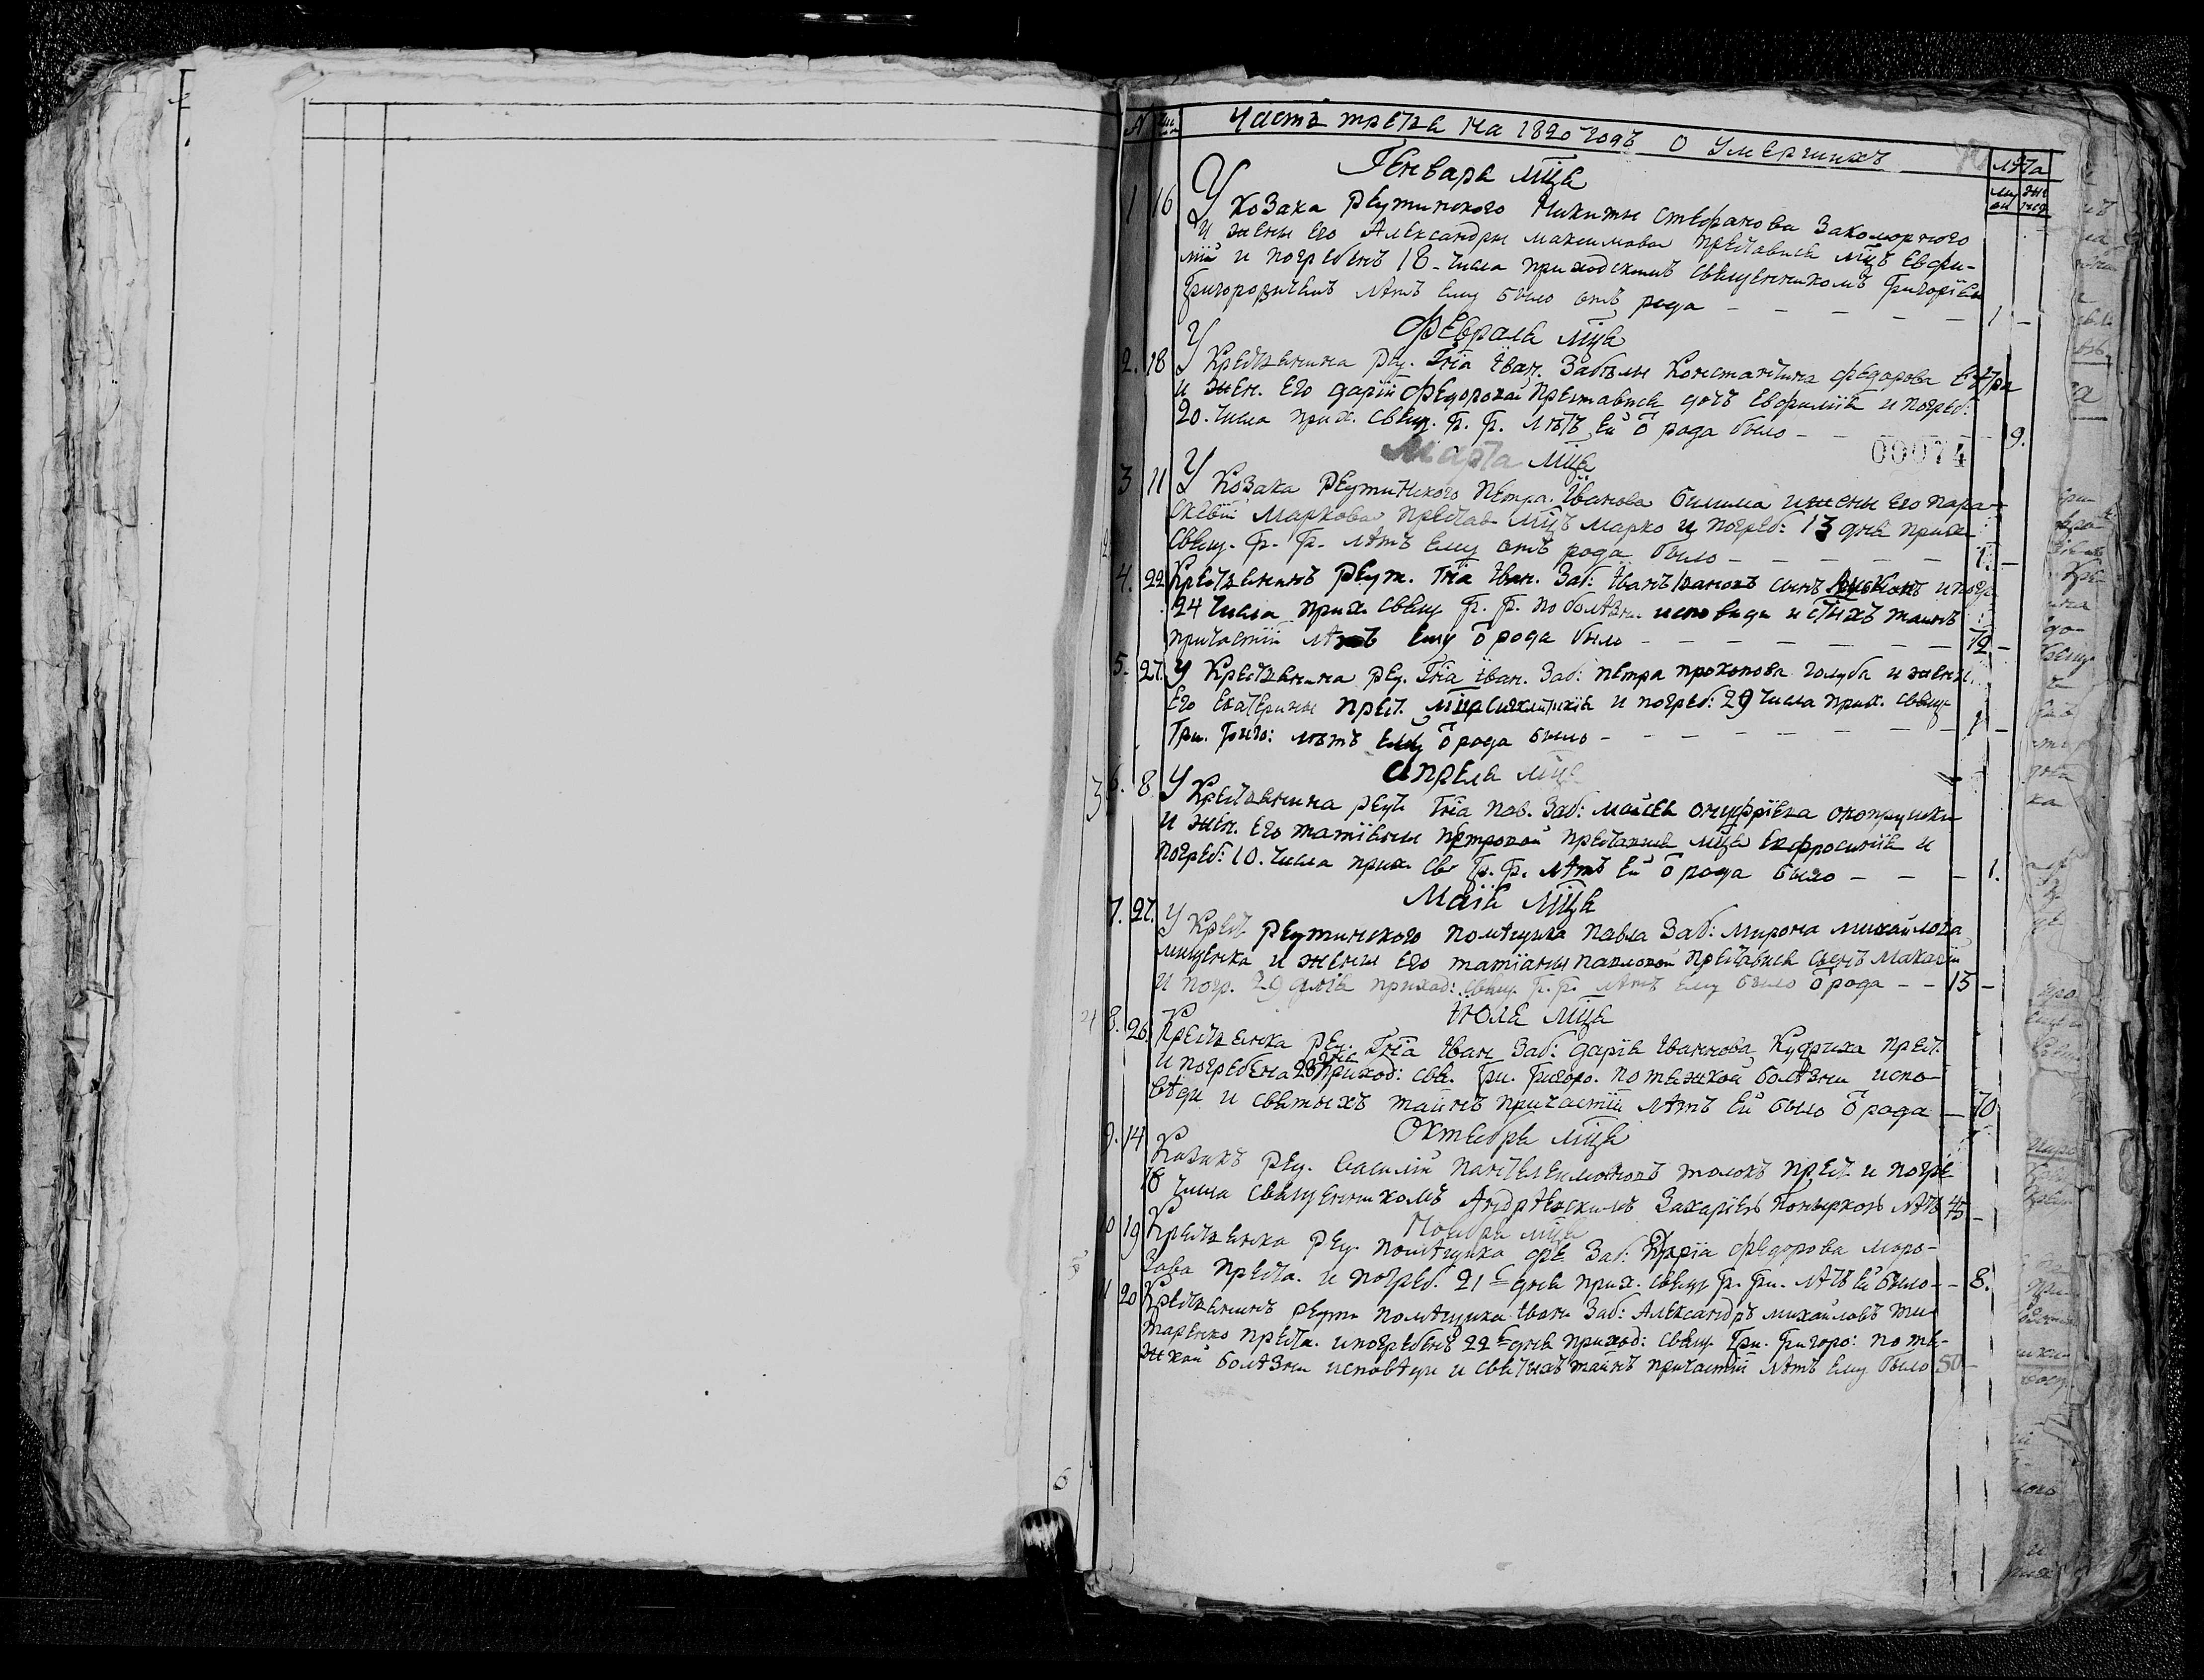 Часть третья на 1820 годъ О Умершихъ
Лѣта
Генваря мца
1 16 У козака Реутинского Никиты Стефанова Закоморного
и жены его Александры Максимовы преставися Евфи-
мій и погребенъ 18 числа приходскимъ священникомъ Григоріем
Григоровичемъ лѣтъ ему было отъ рода — — — — — 1 —
Февраля мца
2. 18 У Крестьянина Реу. Гна Иван. Забѣлы Константина Федорова
и жен. его Даріи Федоровой преставися дочь Евфимія и погреб:
20. числа прих. свящ. Г. Г. лѣтъ ей о рода было — — 9.
00074
Марта мца
3 11 У Козака Реутинского Петра Иванова Билима и жены его Пара-
скевіи Марковы преставъ Марко и погреб: 13 дня прихо
свящ. Г. Г. лѣтъ ему отъ рода было — — — — — 1. —
4. 22 Крестьянинъ Реут. Гна Иван. Заб: Иванъ сынъ и погр
24 числа прих. свящ Г. Г. по болѣзни исповѣди и стыхъ таинъ
причастіи лѣтъ ему о рода было — — — — — — 72 —
5. 27. У Крестьянина Реу. Гна Иван. Заб: Петра Прокопова Голуба и жены
его Екатерины прест. и погреб: 29 числа прих. свящ
Гри. Григо: лѣтъ ему о рода было — — — — — — — 1 —
Апреля мца
6. 8 У Крестьянина Реут Гна Пав. Заб: Мойсея Онуфріева
и жен. его Татіяны Петровой преставися Евфросинія и
погреб: 10. числа прих. св Г. Г. лѣтъ ей о рода было — — — 1.
Маія мца
7. 27. У Крест. Реутинского помѣщика Павла Заб: Мирона Михайлова
Мищенка и жены его Татіаны Павловой преставися сынъ Макарій
и погр. 29 дня приход: свящ. Г. Г. лѣтъ ему было о рода — — 15 —
Июля мца
8. 26. Крестьянка Реу. Гна Иван Заб: Дарія Иванова Кудриха прест.
и погребена 28 дня приход: свя. Гри. Григоро. по тяжкой болѣзни испо-
вѣди и святыхъ таинъ причастіи лѣтъ ей было о рода — 70
Октября мца
9. 14 Козакъ Реу. Василій Пантелеимоновъ Толокъ прест и погре
18 числа священникомъ Андрѣевскимъ Захаріемъ лѣтъ 45 —
Ноября мца
10 19 Крестьянка Реу. помѣщика Фе. Заб: Федорова Моро-
зова преста. и погреб. 21 дня прих. свящ Г. Гри. лѣтъ ей было — — 8.
11 20 Крестьянинъ Реути помѣщика Ивана Заб: Александръ Михайловъ Ти-
таренко преста. и погребенъ 22 дня приход: свящ Гри. Григоро: по тя-
жкой болѣзни исповѣди и святыхъ таинъ причастіи лѣтъ ему было 50 —